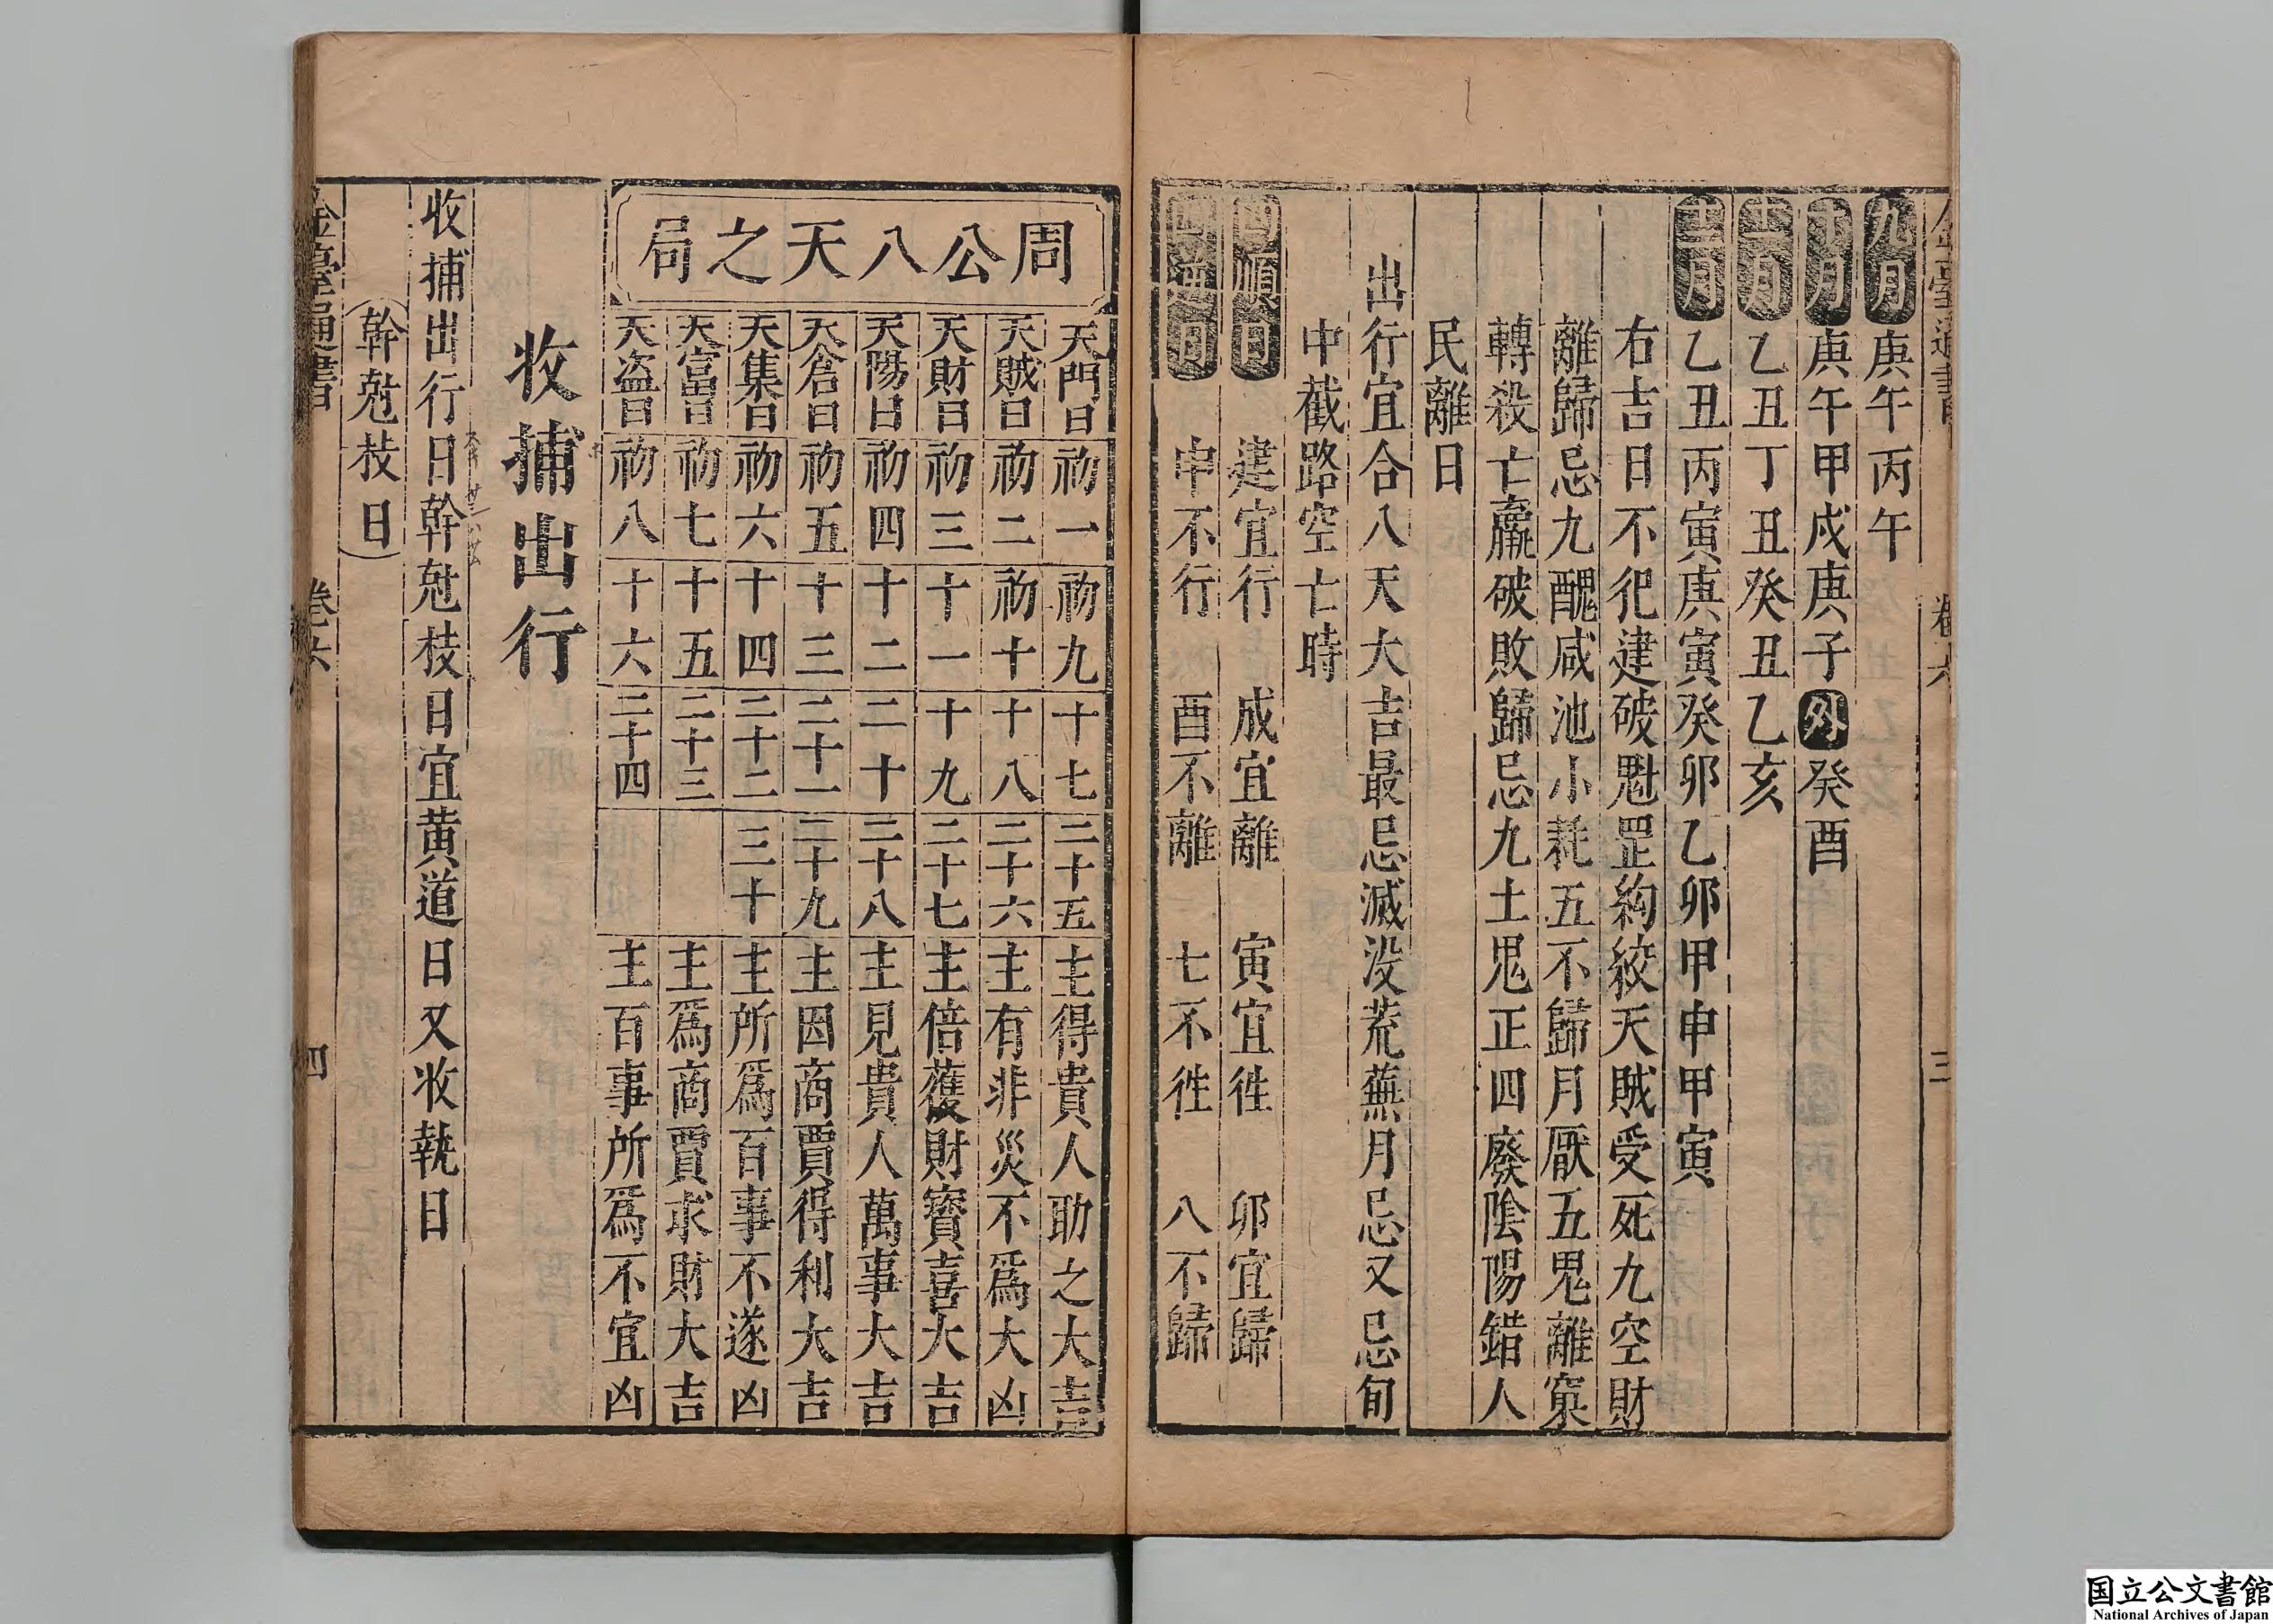 九月 庚午 丙午
十月 庚午 甲戌 庚子 外 癸酉
十一月 乙丑 丁丑 癸丑 乙亥
十二月 乙丑 丙寅 庚寅 癸卯 乙卯 甲申 甲寅
右吉日不犯建破魁罡絇絞天賊受死九空財
離歸忌九醜咸池小耗五不歸月厭五鬼離窠
轉殺亡蠃破敗歸忌九土鬼正四廢陰陽錯人
民離日
出行宜合八天大吉最忌滅没荒蕪月忌又忌旬
中截路空亡時
四順日 建宜行 成宜離 寅宜徃 卯宜歸
四逆日 申不行 酉不離 七不徃 八不歸
周公八天之局
天門日 初一 初九 十七 二十五 主得貴人助之大吉
天賊日 初二 初十 十八 二十六 主有非災不爲大凶
天財日 初三 十一 十九 二十七 主倍蓰財寳喜大吉
天陽日 初四 十二 二十 二十八 主見貴人萬事大吉
天倉日 初五 十三 二十一 二十九 主因商賈得利大吉
天集日 初六 十四 二十二 三十 主所爲百事不遂凶
天富日 初七 十五 二十三 主爲商賈求財大吉
天盗日 初八 十六 二十四 主百事所爲不宜凶
收捕出行
收捕出行日幹尅枝日宜黄道日又收執日
幹尅枝日
卷六 四
国立公文書館
National Archives of Japan